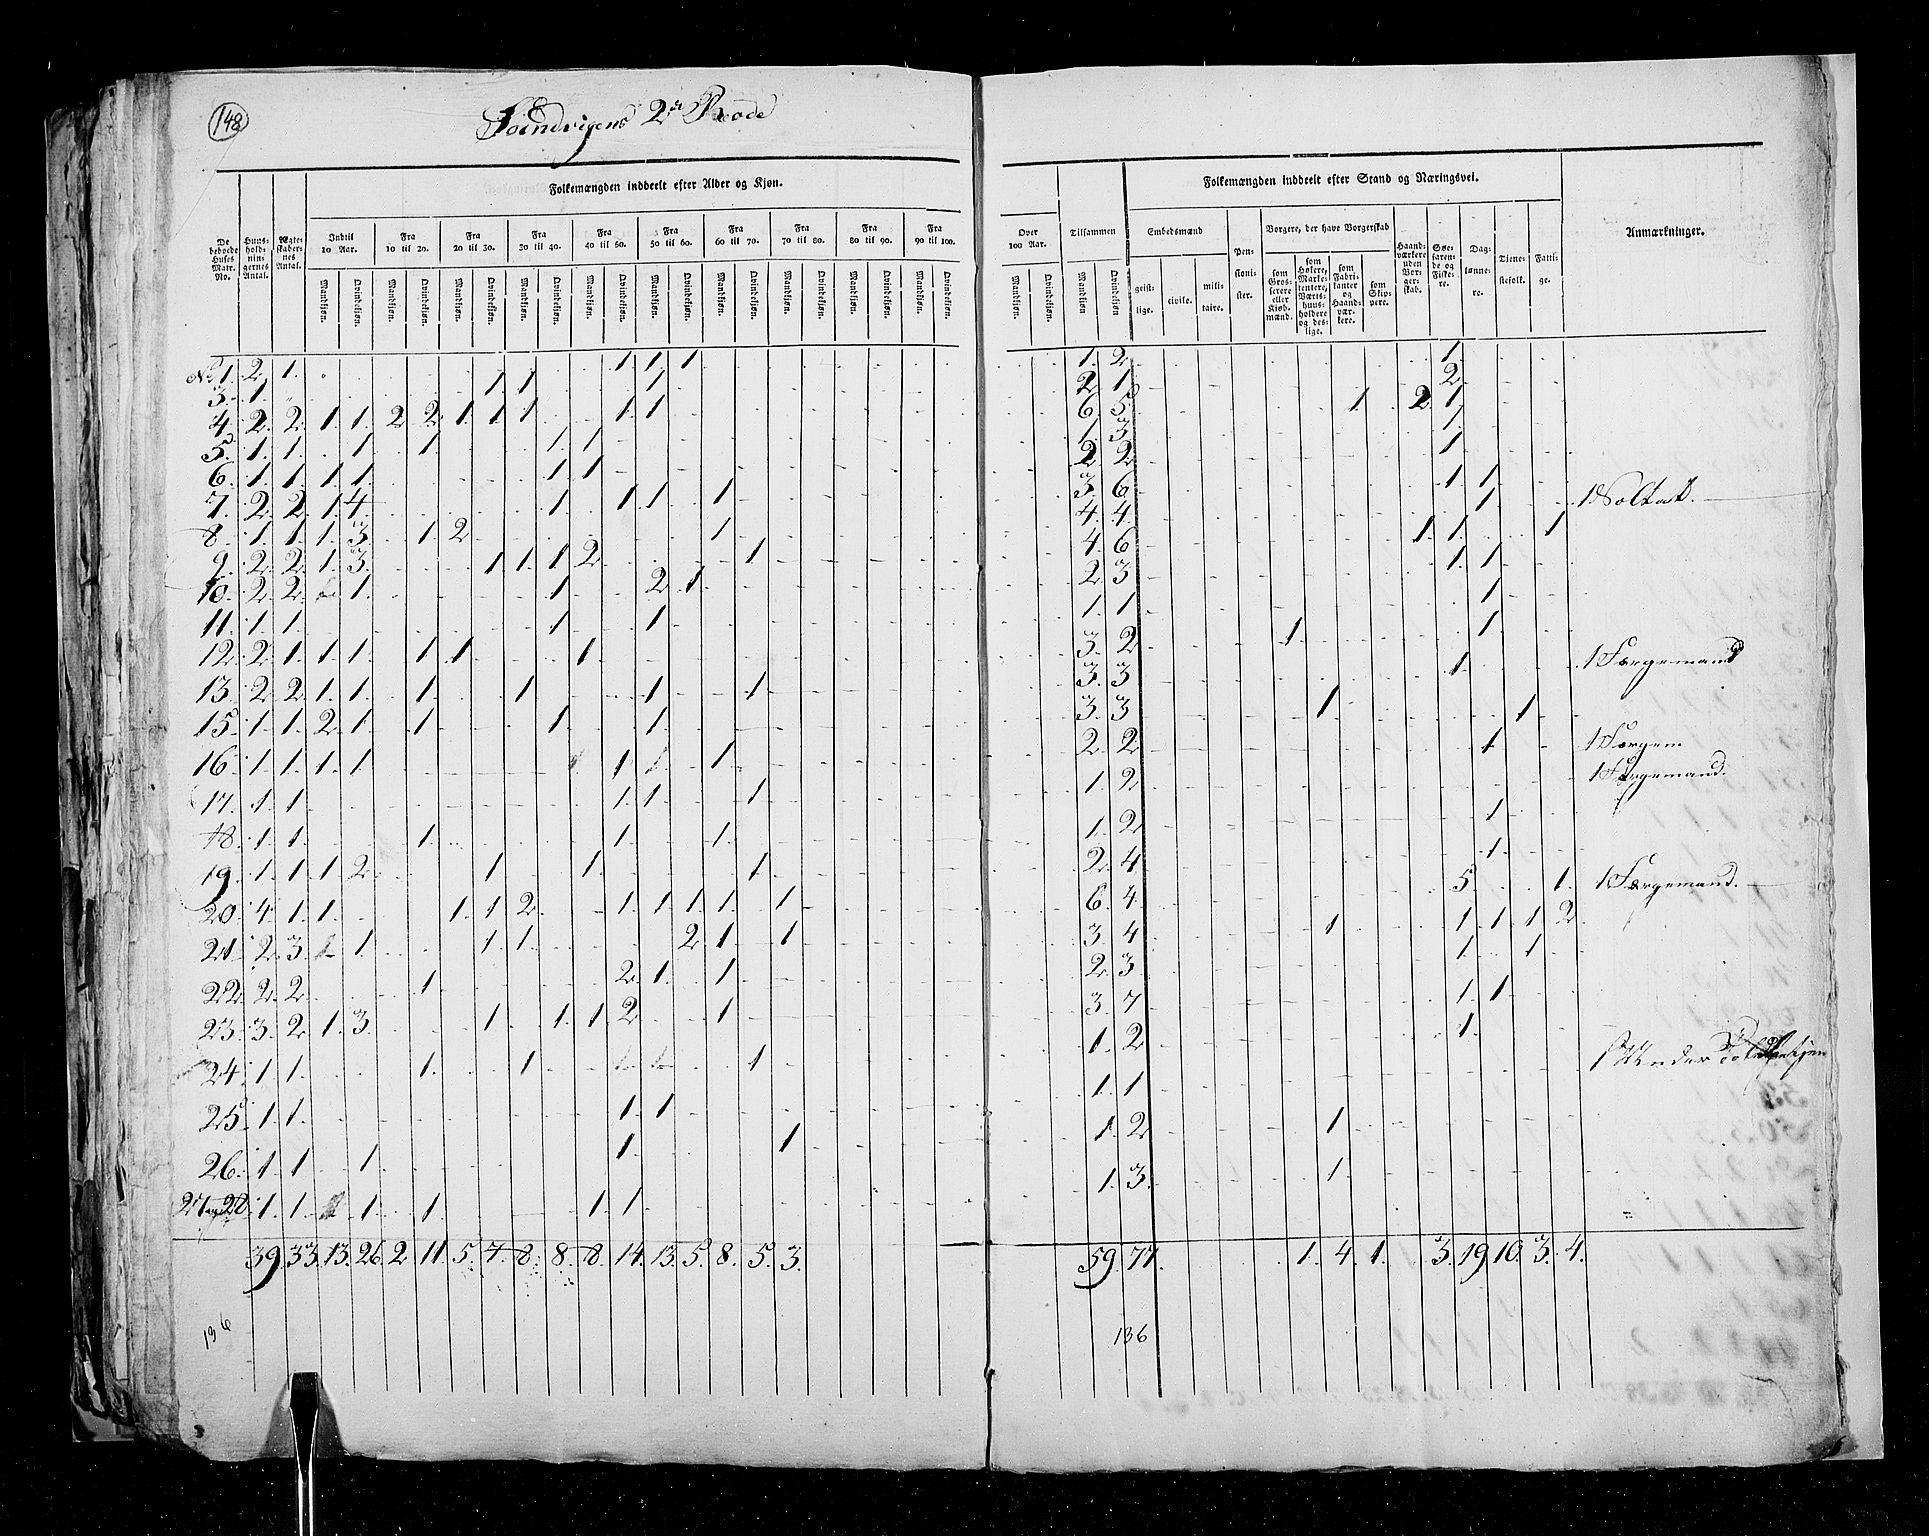 148
2den Rode
Folkemængden inddeelt efter Alder og Kjøn.
Folkemængden inddeelt efter Stand og Næringsvei.
De beboede Huses Matr. No.
Huusholdningernes Antal.
Ægteskabernes Antal.
Indtil 10 Aar.
Fra 10 til 20.
Fra 20 til 30.
Fra 30 til 40.
Fra 40 til 50.
Fra 50 til 60.
Fra 60 til 70.
Fra 70 til 80.
Fra 80 til 90.
Fra 90 til 100.
Over 100 Aar.
Tilsammen
Embedsmænd
Pensionister.
Borgere, der have Borgerskab
Haandværkere uden Borgerskab.
Søefarende og Fiskere.
Daglønnere.
Tjenestefolk.
Fattige.
Anmærkninger.
Mandkjøn. Qvindekjøn. Mandkjøn. Qvindekjøn. Mandkjøn. Qvindekjøn. Mandkjøn. Qvindekjøn. Mandkjøn. Qvindekjøn. Mandkjøn. Qvindekjøn. Mandkjøn. Qvindekjøn. Mandkjøn. Qvindekjøn. Mandkjøn. Qvindekjøn. Mandkjøn. Qvindekjøn. Mandkjøn. Qvindekjøn. Mandkjøn Qvindekjøn
geistlige.
civile.
militaire.
som Grosserere eller Kiøbmænd.
som Høkere, Marketentere, Værtshuusholdere og deslige.
som Fabrikanter og Haandværkere.
som Skippere.
No 1. 2. 1. 1. 1. 1 1. 2. 1.
3. 1. 1. 1. 1. 2. 1. 2.
4. 2. 2. 1. 1. 2 2. 1. 1. 1. 1. 1. 6. 5. 1. 2. 1.
5. 1. 1. 1. 1. 1. 1. 1. 3. 1.
6. 1. 1. 1. 1. 1. 1. 2. 2. 1.
7. 2. 2. 1. 4. 1. 1. 1. 1. 3. 6. 1. 1. 1 Soldat.
8. 1. 1. 1. 3. 1. 2. 1. 4. 4. 1.
9. 2. 2. 1. 3. 1. 1. 1. 2. 1. 4. 6. 1. 1. 1
10. 2. 2. 1. 1. 2. 1. 2. 3. 1. 1.
11. 1. 1. 1. 1. 1. 1. 1.
12. 2. 1. 1. 1. 1. 1. 1. 3. 2. 1. 1.
13. 2. 2. 1. 1. 1. 1. 1. 1. 3. 3. 1. 1 Færgemand
15. 1. 1. 2. 1. 1. 1. 1. 3. 3. 1. 1.
16. 1. 1. 1. 1. 1. 1. 2. 2. 1. 1 Færgem
17. 1. 1. 1. 1. 1. 1. 2. 1 Færgemand.
18. 1. 1. 1. 1. 1. 1. 2. 1.
19. 1. 1. 1. 2. 1. 1. 1. 2. 4. 1.
20. 4. 1. 1. 1. 1. 2. 1. 1. 1. 1. 1. 6. 4. 5. 1. 1 Færgemand.
21. 2. 3. 1. 1. 1. 2. 1. 1. 3. 4. 1. 1. 1. 1. 2.
22. 2. 2. 1. 2. 1. 1. 2. 3. 1. 1.
23. 3. 2. 1. 3. 1. 1. 1. 2. 1. 3. 7. 1. 1.
24. 1. 1. 1. 1. 1. 1. 2. 1.
25. 1. 1. 1. 1. 1. 1. 1 Under
26. 1. 1. 1. 1. 1. 1. 2. 1.
27 og 28. 1. 1. 1. 1. 1. 1. 1. 3. 1.
39. 33. 13. 26. 2. 11. 5. 7. 8. 8. 8. 14. 13. 5. 8. 5. 3. 59. 77. 1. 4. 1. 3. 19. 10. 3. 4.
136
136